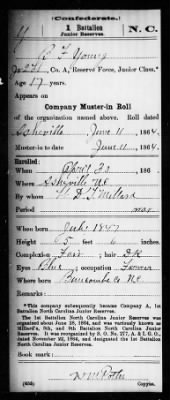 (Confederate.)
Y 1 Battalion N. C.
Junior Reserves.
R F Young
Co. A, Reserve Force, Junior Class.*
Age 17 years.
Appears on
Company Muster-in Roll
of the organization named above. Roll dated
Asheville June 11, 1864.
Muster-in to date June 11, 1864.
Enrolled:
When April 23, 186
Where Asheville N.C.
By whom
Period war
When born 1847
Height 5 feet 6 inches.
Complexion Fair hair DK
Eyes Blue occupation Farmer
Where born Buncombe Co NC
*This company subsequently became Company A, 1st
Battalion North Carolina Junior Reserves.
The 1st Battalion North Carolina Junior Reserves was
organized about June 18, 1864, and was variously known as
Millard's, 5th, and 9th Battalion North Carolina Junior
Reserves. It was reorganized by S. O. No. 277, A. & I. G. O.,
dated November 22, 1864, and designated the 1st Battalion
North Carolina Junior Reserves.
Book mark:
(655) Copyist.